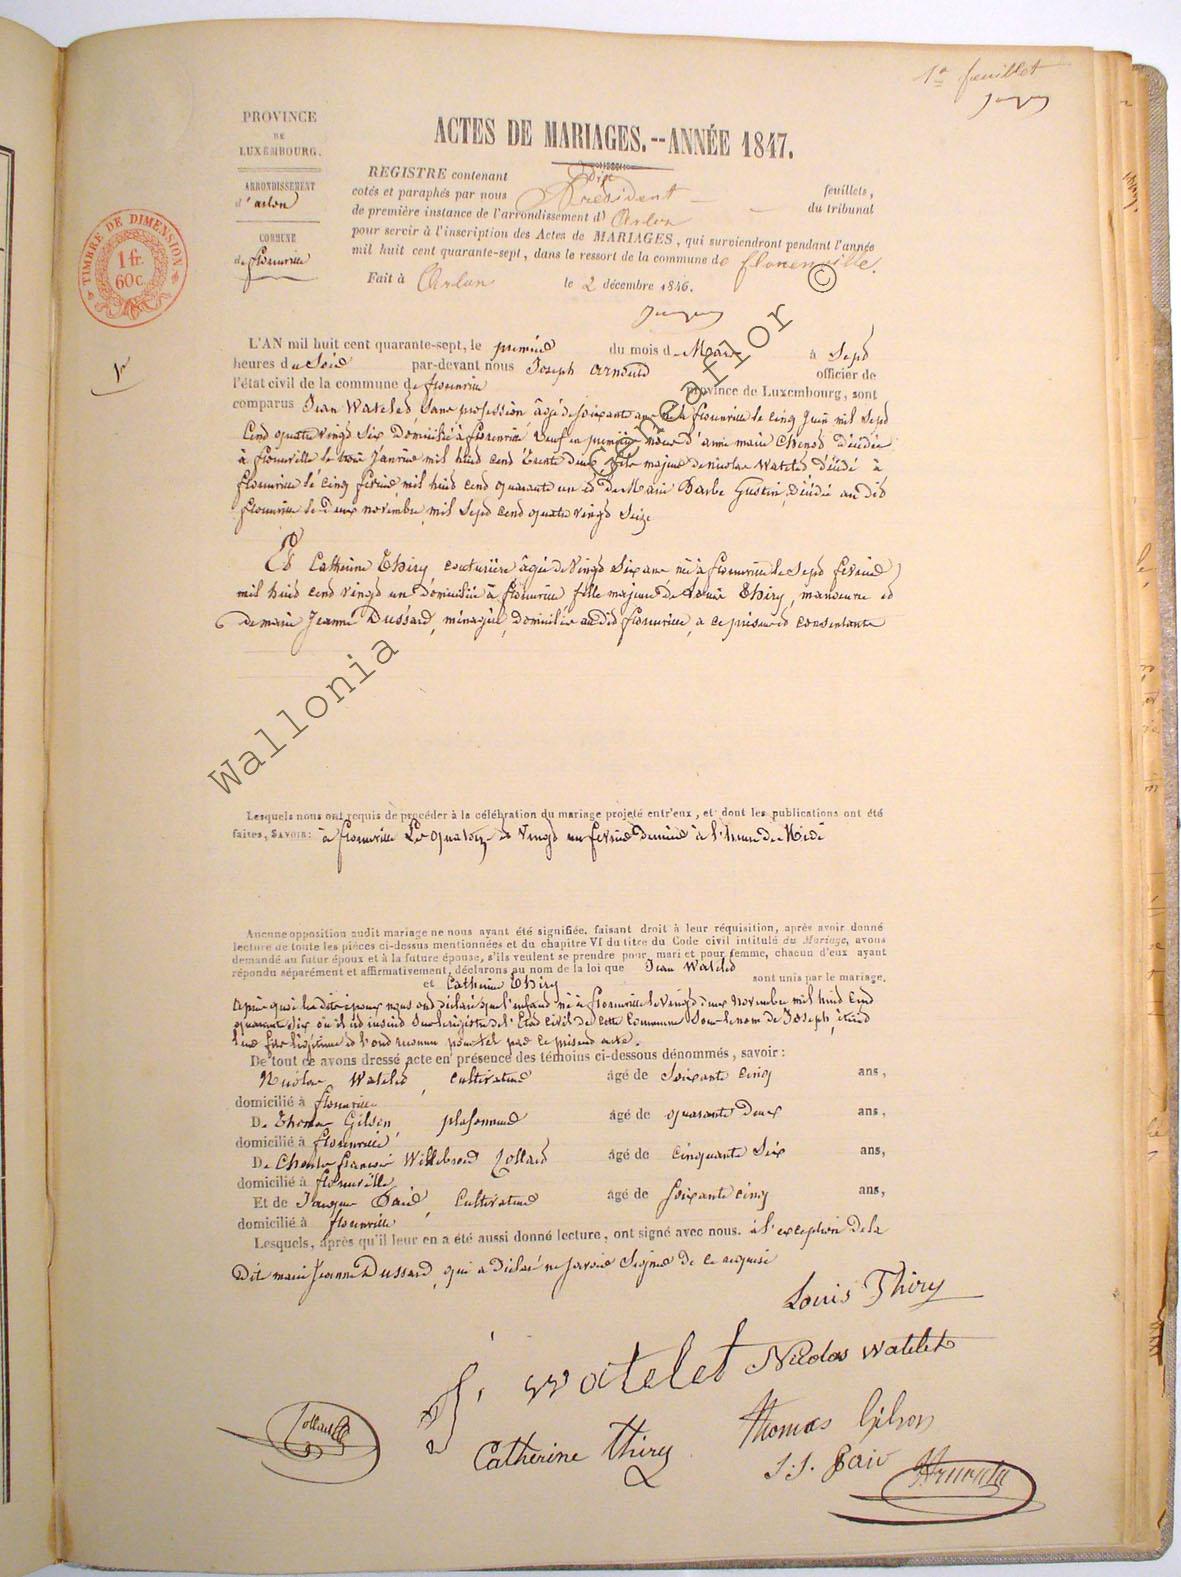 1er feuillet
PROVINCE
DE
LUXEMBOURG.
ARRONDISSEMENT
d'arlon
COMMUNE
de florenville
TIMBRE DE DIMENSION
1 fr.
60 c.
ACTES DE MARIAGES.--ANNÉE 1847.
REGISTRE contenant Dix feuillets,
cotés et paraphés par nous Président du tribunal
de première instance de l'arrondissement d'Arlon
pour servir à l'inscription des Actes de MARIAGES, qui surviendront pendant l'année
mil huit cent quarante-sept, dans le ressort de la commune de florenville.
Fait à Arlon le 2 décembre 1846.
L'AN mil huit cent quarante-sept, le premier du mois de Mars à Sept
heures du Soir par-devant nous Joseph Arnould officier de
l'état civil de la commune de florenville province de Luxembourg, sont
comparus Jean Watelet Sans profession âgé de soixante ans né à florenville le cinq Juin mil Sept
Cent quatre vingt Six Domicilié à florenville Veuf en premières noces d'anne marie Décédée
à florenville le trois Janvier mil huit cent trente deux fils majeur de nicolas Watelet Décédé à
florenville le cinq fevrier mil huit cent quarante un et de Marie Barbe Gustin, Décédée au dit
florenville le Deux novembre mil Sept cent quatre vingt Seize
Et Catherine Thiry couturière âgée de Vingt Six ans née à florenville le Sept fevrier
mil huit cent vingt un Domiciliée à florenville fille majeure de Louis Thiry, manoeuvre et
de marie Jeanne Dussard, ménagère, Domiciliés au dit florenville, a ce présents et consentants
Lesquels nous ont requis de procéder à la célébration du mariage projeté entr'eux, et dont les publications ont été
faites, SAVOIR: à florenville Le quatorze et Vingt un fevrier dernier à l'heure de Midi
Aucune opposition audit mariage ne nous ayant été signifiée, faisant droit à leur réquisition, après avoir donné
lecture de toute les pièces ci-dessus mentionnées et du chapitre VI du titre du Code civil intitulé du Mariage, avons
demandé au futur époux et à la future épouse, s'ils veulent se prendre pour mari et pour femme, chacun d'eux ayant
répondu séparément et affirmativement, déclarons au nom de la loi que Jean Watelet
et Catherine Thiry sont unis par le mariage.
après quoi les dits époux nous ont déclaré que l'enfant né à florenville le Vingt deux Novembre mil huit Cent
quarante Six où il est inscrit Sur le registre de l'Etat Civil de cette Commune Sous le nom de Joseph, était
l'ont reconnu pour tel par le présent acte.
De tout ce avons dressé acte en présence des témoins ci-dessous dénommés, savoir:
Nicolas Watelet, cultivateur âgé de soixante cinq ans,
domicilié à florenville
De Thomas Gilson, plafonneur âgé de quarante deux ans,
domicilié à florenville
De Charles françois Willebrord Collard âgé de cinquante Six ans,
domicilié à florenville
Et de Jacques cultivateur âgé de soixante cinq ans,
domicilié à florenville
Lesquels, après qu'il leur en a été aussi donné lecture, ont signé avec nous. à l'exception de la
Dite marie Jeanne Dussard, qui a déclaré ne savoir Signer De ce requise
Louis Thiry
J. Watelet
Nicolas Watelet
Collard
Catherine Thiry
Thomas Gilson
J.J.
Wallonia Geneaflor ©